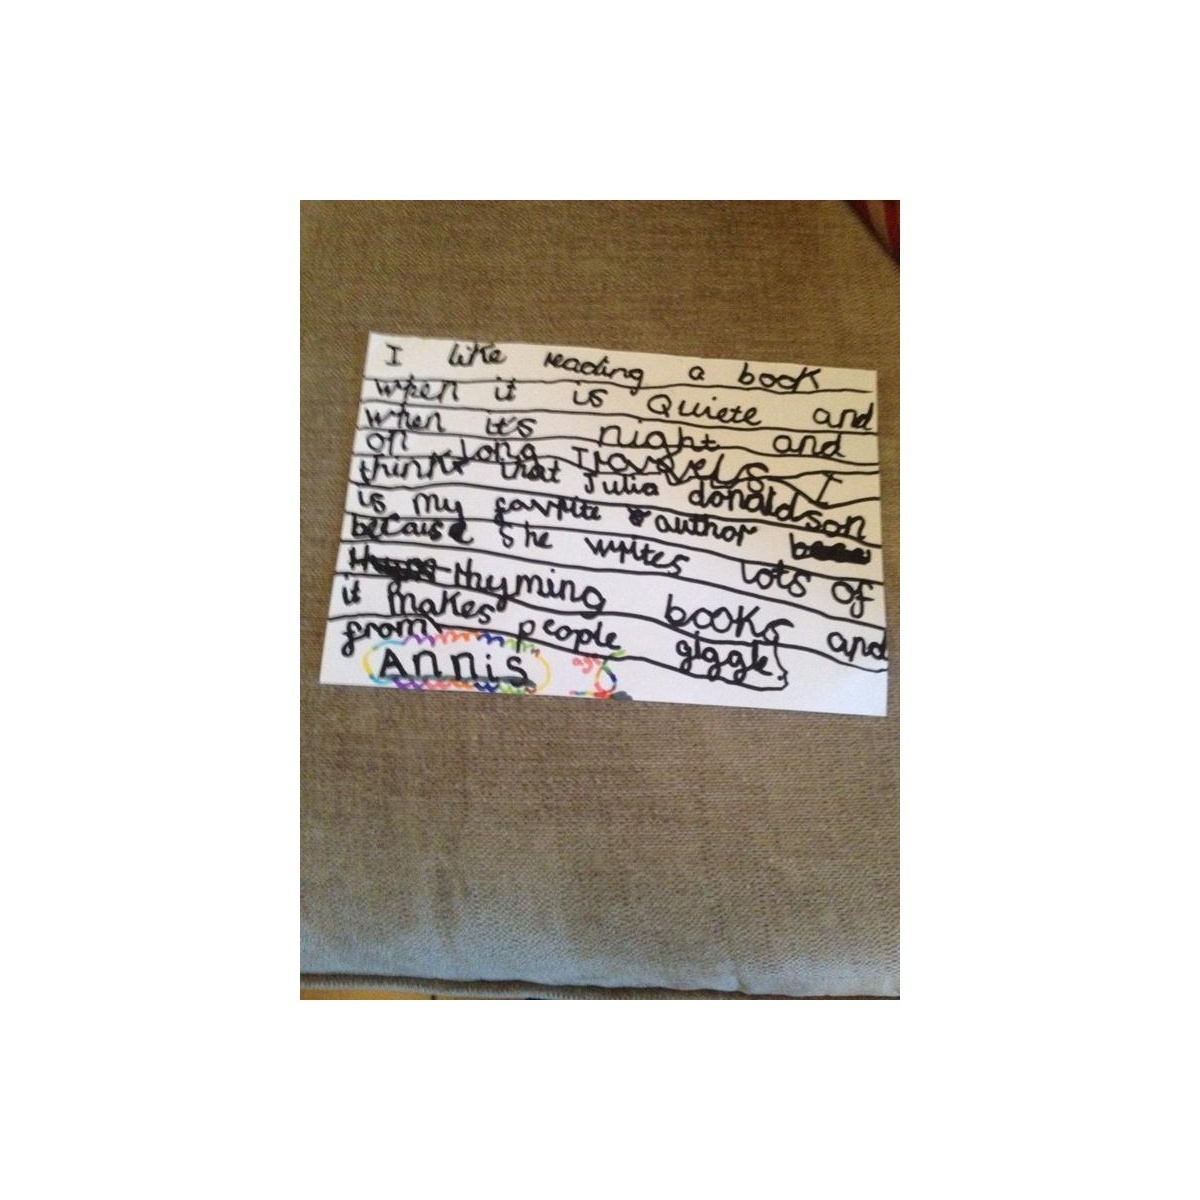 I like reading a book
when it is Quiete and
when it's night and
on long Travels I
think that Julia donaldson
is my favrite author
because she writes lots of
rhyming books and
it makes people giggle.
from
Annis age 6